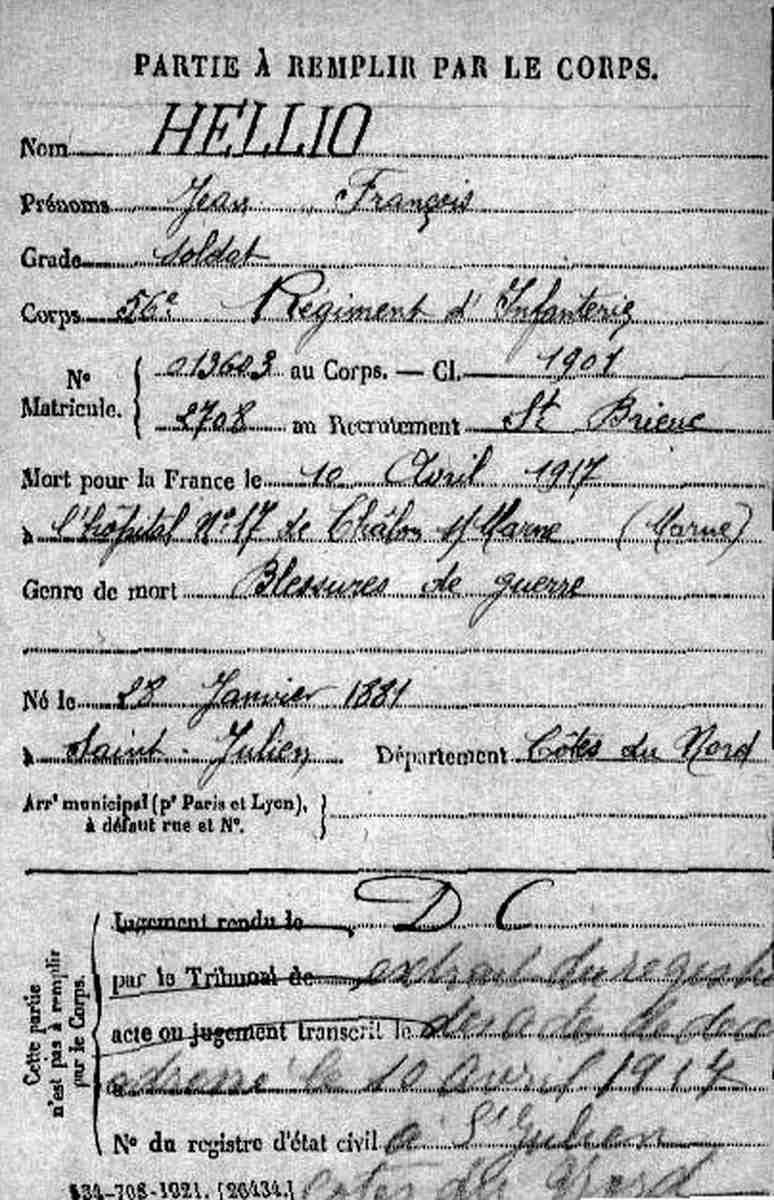 PARTIE À REMPLIR PAR LE CORPS.
Nom HELLIO
Prénoms Jean François
Grade Soldat
Corps 56e Régiment d'Infanterie
No Matricule. { 013603 au Corps. — Cl. 1901
2708 au Recrutement St Brieuc
Mort pour la France le 10 Avril 1917
à l'hôpital No 17 de Châlon s/Marne (Marne)
Genre de mort Blessures de guerre
Né le 28 Janvier 1881
à Saint-Julien Département Côtes du Nord
Arrt municipal (pr Paris et Lyon), à défaut rue et No. }
Cette partie n'est pas à remplir par le Corps.
Jugement rendu le D C
par le Tribunal de extrait du registre
acte ou jugement transcrit le des actes de
adressé le 10 Avril 1917
No du registre d'état civil à St Julien
534-708-1921. [26434.] Côtes du Nord